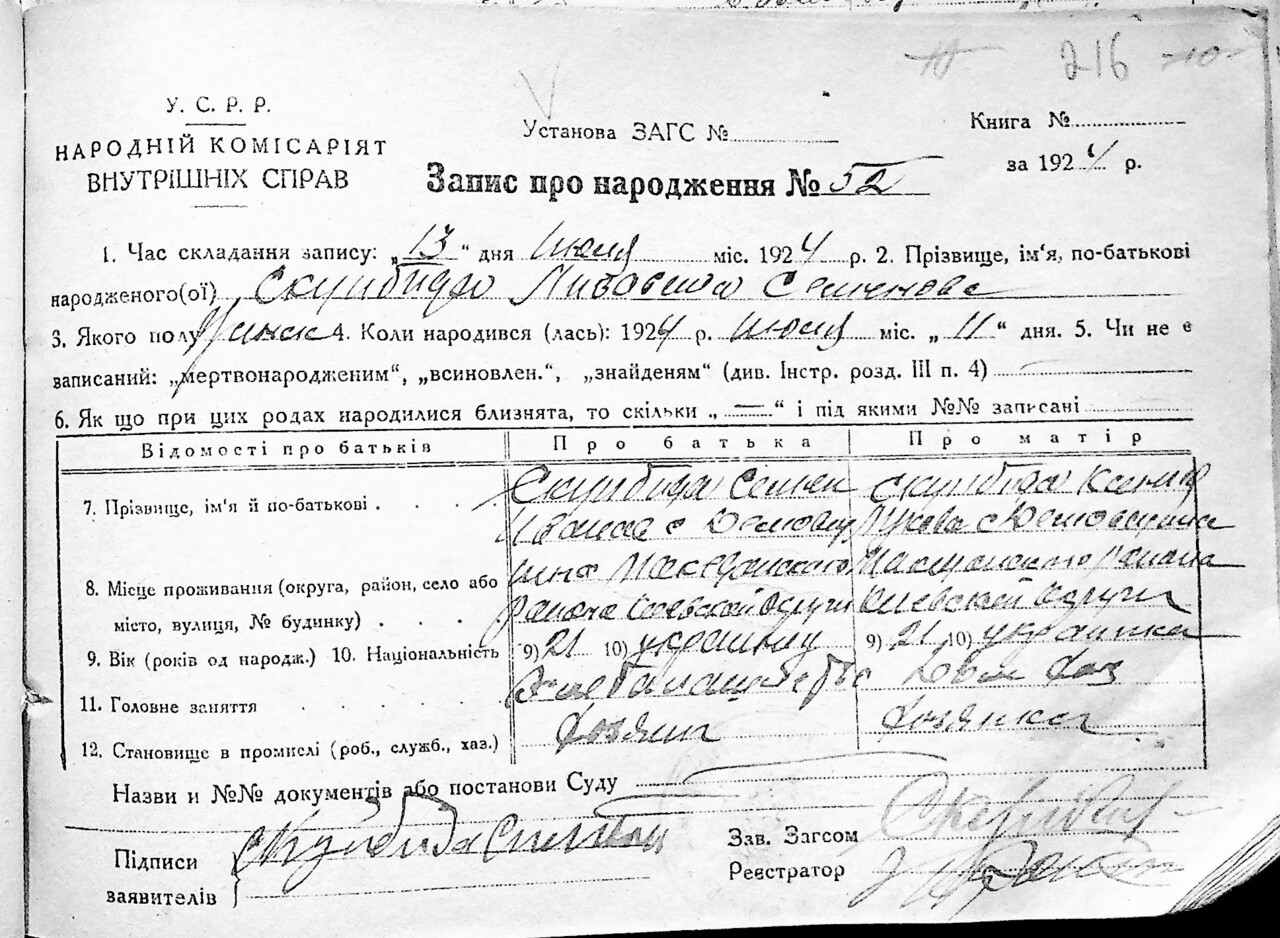 216
У. С. Р. Р.
НАРОДНІЙ КОМІСАРІЯТ
ВНУТРІШНІХ СПРАВ
Установа ЗАГС №
Книга №
за 1924 р.
Запис про народження № 52
1. Час складання запису: „13" дня Июля міс. 1924 р. 2. Прізвище, ім'я, по-батькові
народженого(ої) Скуибида Семенова
3. Якого полу Жинск 4. Коли народився (лась): 1924 р. июля міс. „11" дня. 5. Чи не є
записаний: „мертвонародженим", „всиновлен.", „знайденям" (див. Інстр. розд. III п. 4)
6. Як що при цих родах народилися близнята, то скільки „—" і під якими №№ записані
Відомості про батьків Про батька Про матір
7. Прізвище, ім'я й по-батькові Скуибида Семен Скуибида Ксения
Иванов с Демовщ Лукова с Демовщина
8. Місце проживання (округа, район, село або ина Макаровского Макаровского Района
місто, вулиця, № будинку) Района Киевской Округи Киевской Округи
9. Вік (років од народж.) 10. Національність 9) 21 10) украинец 9) 21 10) украинка
11. Головне заняття Дом хоз
12. Становище в промислі (роб., служб., хаз.) Хозяин Хозяйка
Назви и №№ документів або постанови Суду
Підписи Скуибида Зав. Загсом
заявителів Реєстратор